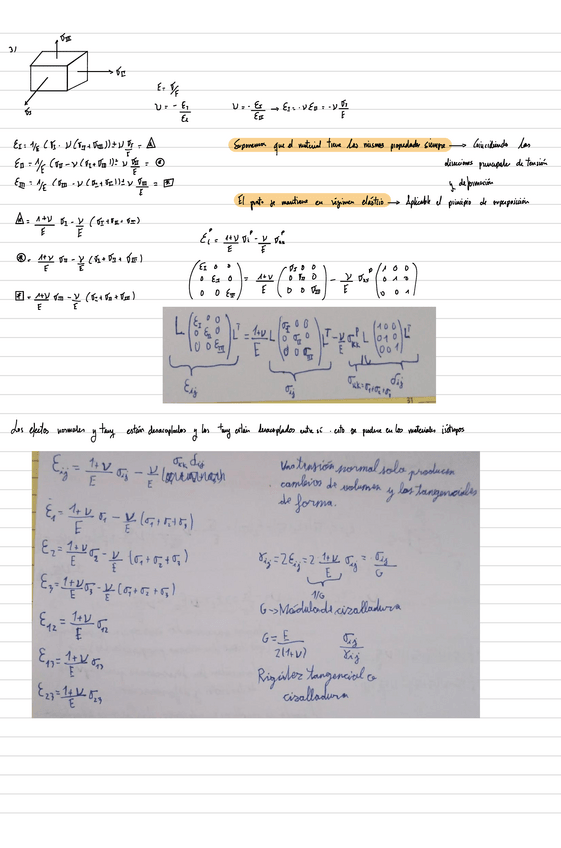 3)
σIII
σII
σI
E = σ/ε
ν = - εI/εL
ν = - εI/εII → εI = - ν εII = - ν σI/E
εI = 1/E (σI - ν (σII + σIII)) ± ν σI/E = A
εII = 1/E (σII - ν (σI + σIII)) ± ν σII/E =
εIII = 1/E (σIII - ν (σI + σII)) ± ν σIII/E =
Suponemos que el material tiene las mismas propiedades siempre → Coincidiendo las
direcciones principales de tensión
y deformación
El punto se mantiene en régimen elástico → Aplicable el principio de superposición
= 1+ν/E σI - ν/E (σI + σII + σIII)
= 1+ν/E σII - ν/E (σI + σII + σIII)
= 1+ν/E σIII - ν/E (σI + σII + σIII)
εi^P = 1+ν/E σi^P - ν/E σkk^P
(εI 0 0 / 0 εII 0 / 0 0 εIII) = 1+ν/E (σI 0 0 / 0 σII 0 / 0 0 σIII) - ν/E σkk^P (1 0 0 / 0 1 0 / 0 0 1)
L (εI 0 0 / 0 εII 0 / 0 0 εIII) L^T = 1+ν/E L (σI 0 0 / 0 σII 0 / 0 0 σIII) L^T - ν/E σkk^P L (1 0 0 / 0 1 0 / 0 0 1) L^T
εij σij σkk = σ1+σ2+σ3 δij
Los efectos normales y tang están desacoplados y los tang están desacoplados entre sí. esto se produce en los materiales isótropos
εij = 1+ν/E σij - ν/E σkk δij
Una tensión normal solo producen
cambios de volumen y las tangenciales
de forma.
ε1 = 1+ν/E σ1 - ν/E (σ1 + σ2 + σ3)
ε2 = 1+ν/E σ2 - ν/E (σ1 + σ2 + σ3)
γij = 2εij = 2 1+ν/E σij = σij/G
1/G
ε3 = 1+ν/E σ3 - ν/E (σ1 + σ2 + σ3)
G → Módulo de cizalladura
ε12 = 1+ν/E σ12
G = E/2(1+ν) σij/γij
ε13 = 1+ν/E σ13
Rigidez tangencial o
cizalladura
ε23 = 1+ν/E σ23